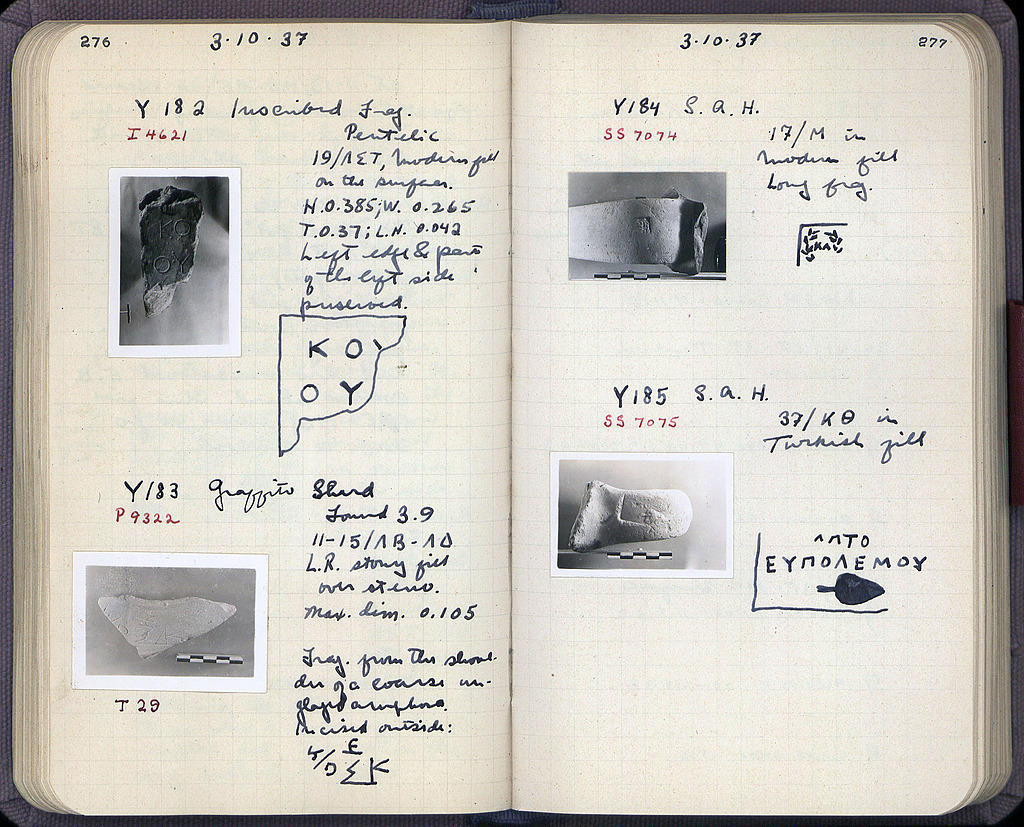 276
3·10·37
Y 182 Inscribed Frag.
I 4621
Pentelic
19/ΛΣΤ, Modern fill
on the surface.
H. 0.385; W. 0.265
T. 0.37; L.H. 0.042
Left edge & part
of the left side
preserved.
ΚΟ
ΟΥ
Y 183 Graffito Sherd
P 9322
Found 3.9
11-15/ΛΒ-ΛΔ
L.R. stony fill
over stereo.
Max. dim. 0.105
T 29
Frag. from the shoul-
der of a coarse un-
glazed amphora.
Incised outside:
Ε
Σ Κ
3·10·37
277
Y 184 S. A. H.
SS 7074
17/Μ in
modern fill
Long frag.
ΚΛ
Y 185 S. A. H.
SS 7075
37/ΚΘ in
Turkish fill
ΕΥΠΟΛΕΜΟΥ